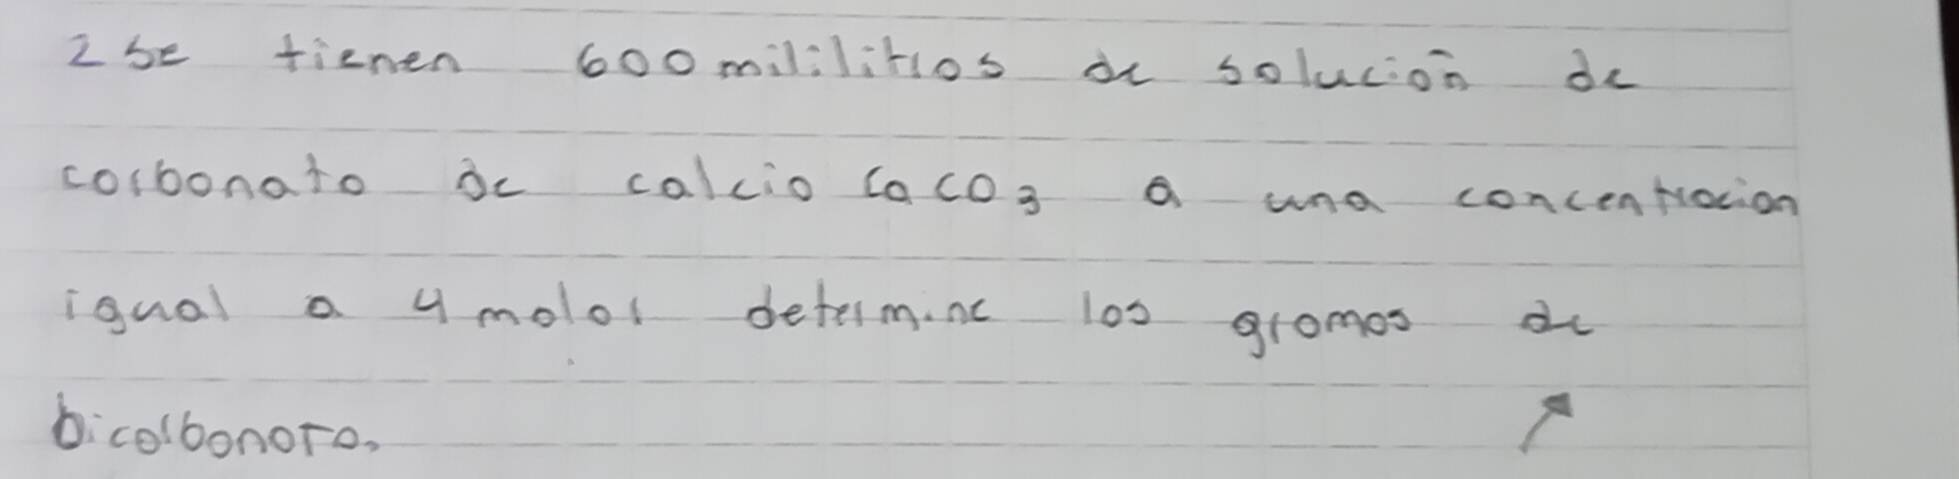 2 Se tienen 600 mililitros de solución de
carbonato de calcio CaCO3 a una concentracion
igual a 4 molar determine los gramos de
bicarbonato.